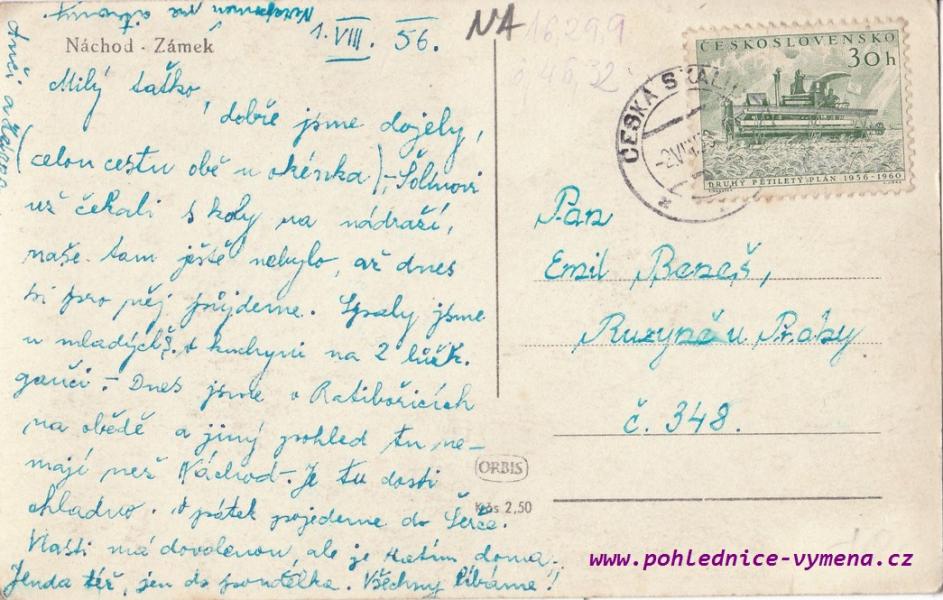 1. VIII. 56.
NA
16,29,9
Náchod - Zámek
Milý taťko!
dobře jsme dojely,
(celou cestu obě u okénka) - Šólinovi
už čekali s koly na nádraží,
naše tam ještě nebylo, až dnes
si pro něj půjdeme. Spaly jsme
u mladých v kuchyni na 2 lůžk.
gauči. - Dnes jsme v Ratibořicích
na obědě a jiný pohled tu ne-
mají než Náchod - Je tu dosti
chladno. V pátek pojedeme do
Vlasti má dovolenou, ale je zatím doma.
Jenda též, jen do pondělka. Všechny líbáme!
ČESKOSLOVENSKO
30 h
DRUHÝ PĚTILETÝ PLÁN 1956-1960
ČESKÁ SKALI
-2.VIII.
Pan
Emil Beneš,
Ruzyně u Prahy
č. 348.
ORBIS
Kčs 2,50
www.pohlednice-vymena.cz